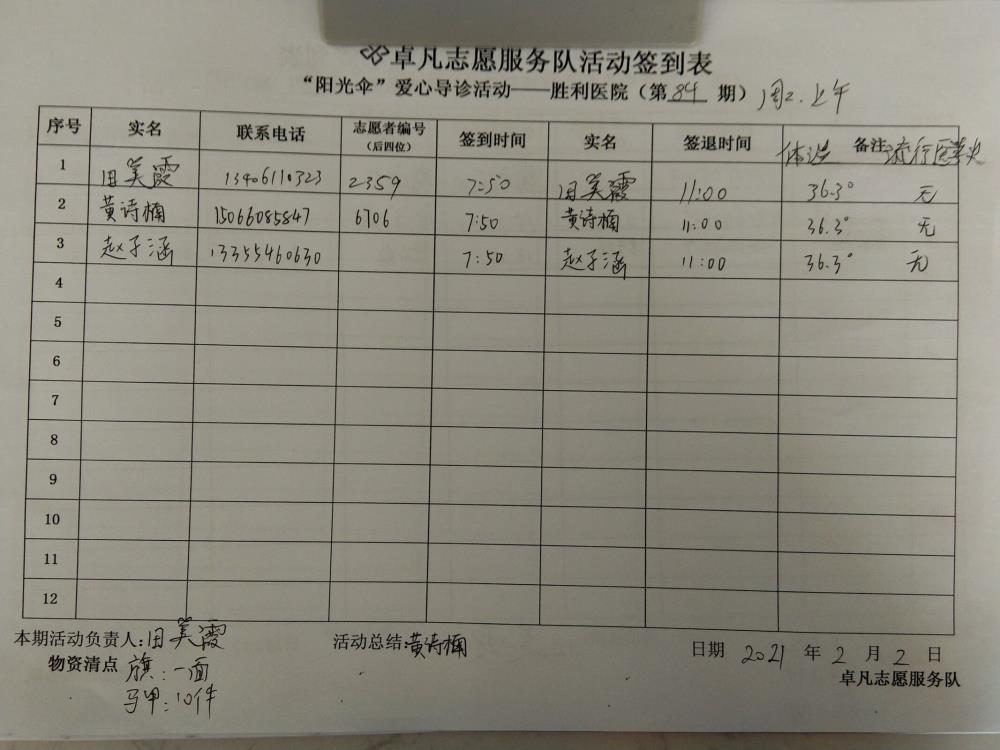 卓凡志愿服务队活动签到表
“阳光伞”爱心导诊活动——胜利医院（第 84 期）周2.上午
序号 实名 联系电话 志愿者编号（后四位） 签到时间 实名 签退时间 体温 备注 流行医学史
1 田美霞 13406110323 2359 7:50 田美霞 11:00 36.3° 无
2 黄诗楠 15066085847 6706 7:50 黄诗楠 11:00 36.3° 无
3 赵子涵 13355460630 7:50 赵子涵 11:00 36.3° 无
4
5
6
7
8
9
10
11
12
本期活动负责人:田美霞 活动总结:黄诗楠 日期 2021 年 2 月 2 日
物资清点 旗:一面 卓凡志愿服务队
马甲:10件